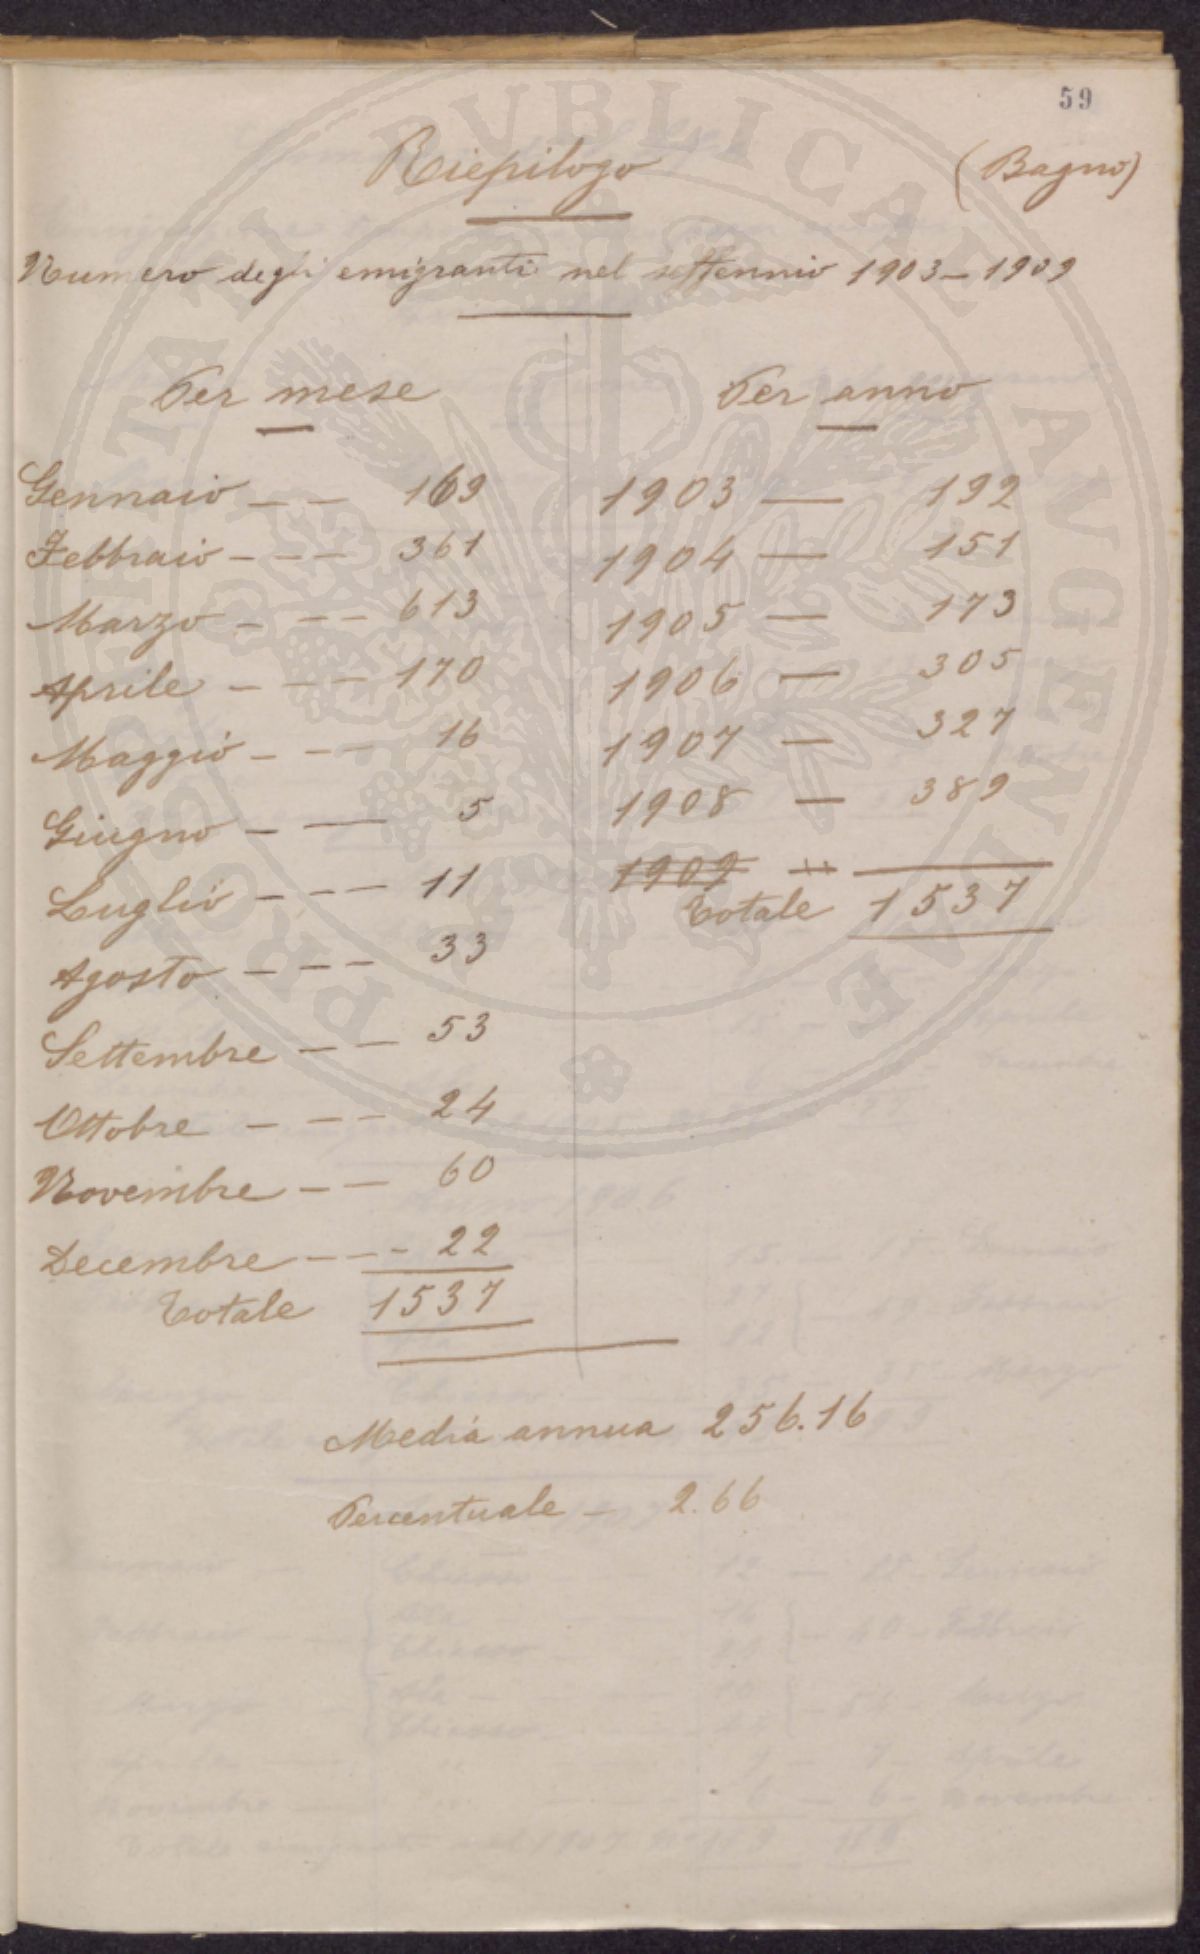 59
Riepilogo
(Bagno)
Numero degli emigranti nel settennio 1903–1909
Per mese
Gennaio – – 169
Febbraio – – – 361
Marzo – – – 613
Aprile – – – 170
Maggio – – – 16
Giugno – — 5
Luglio – – – 11
Agosto – – – 33
Settembre – – 53
Ottobre – – – 24
Novembre – – 60
Decembre – – – 22
Totale 1537
Per anno
1903 — 192
1904 — 151
1905 — 173
1906 — 305
1907 — 327
1908 — 389
1909 —
Totale 1537
Media annua 256.16
Percentuale – 2.66
PROSPERITATI PVBLICAE AVGENDAE